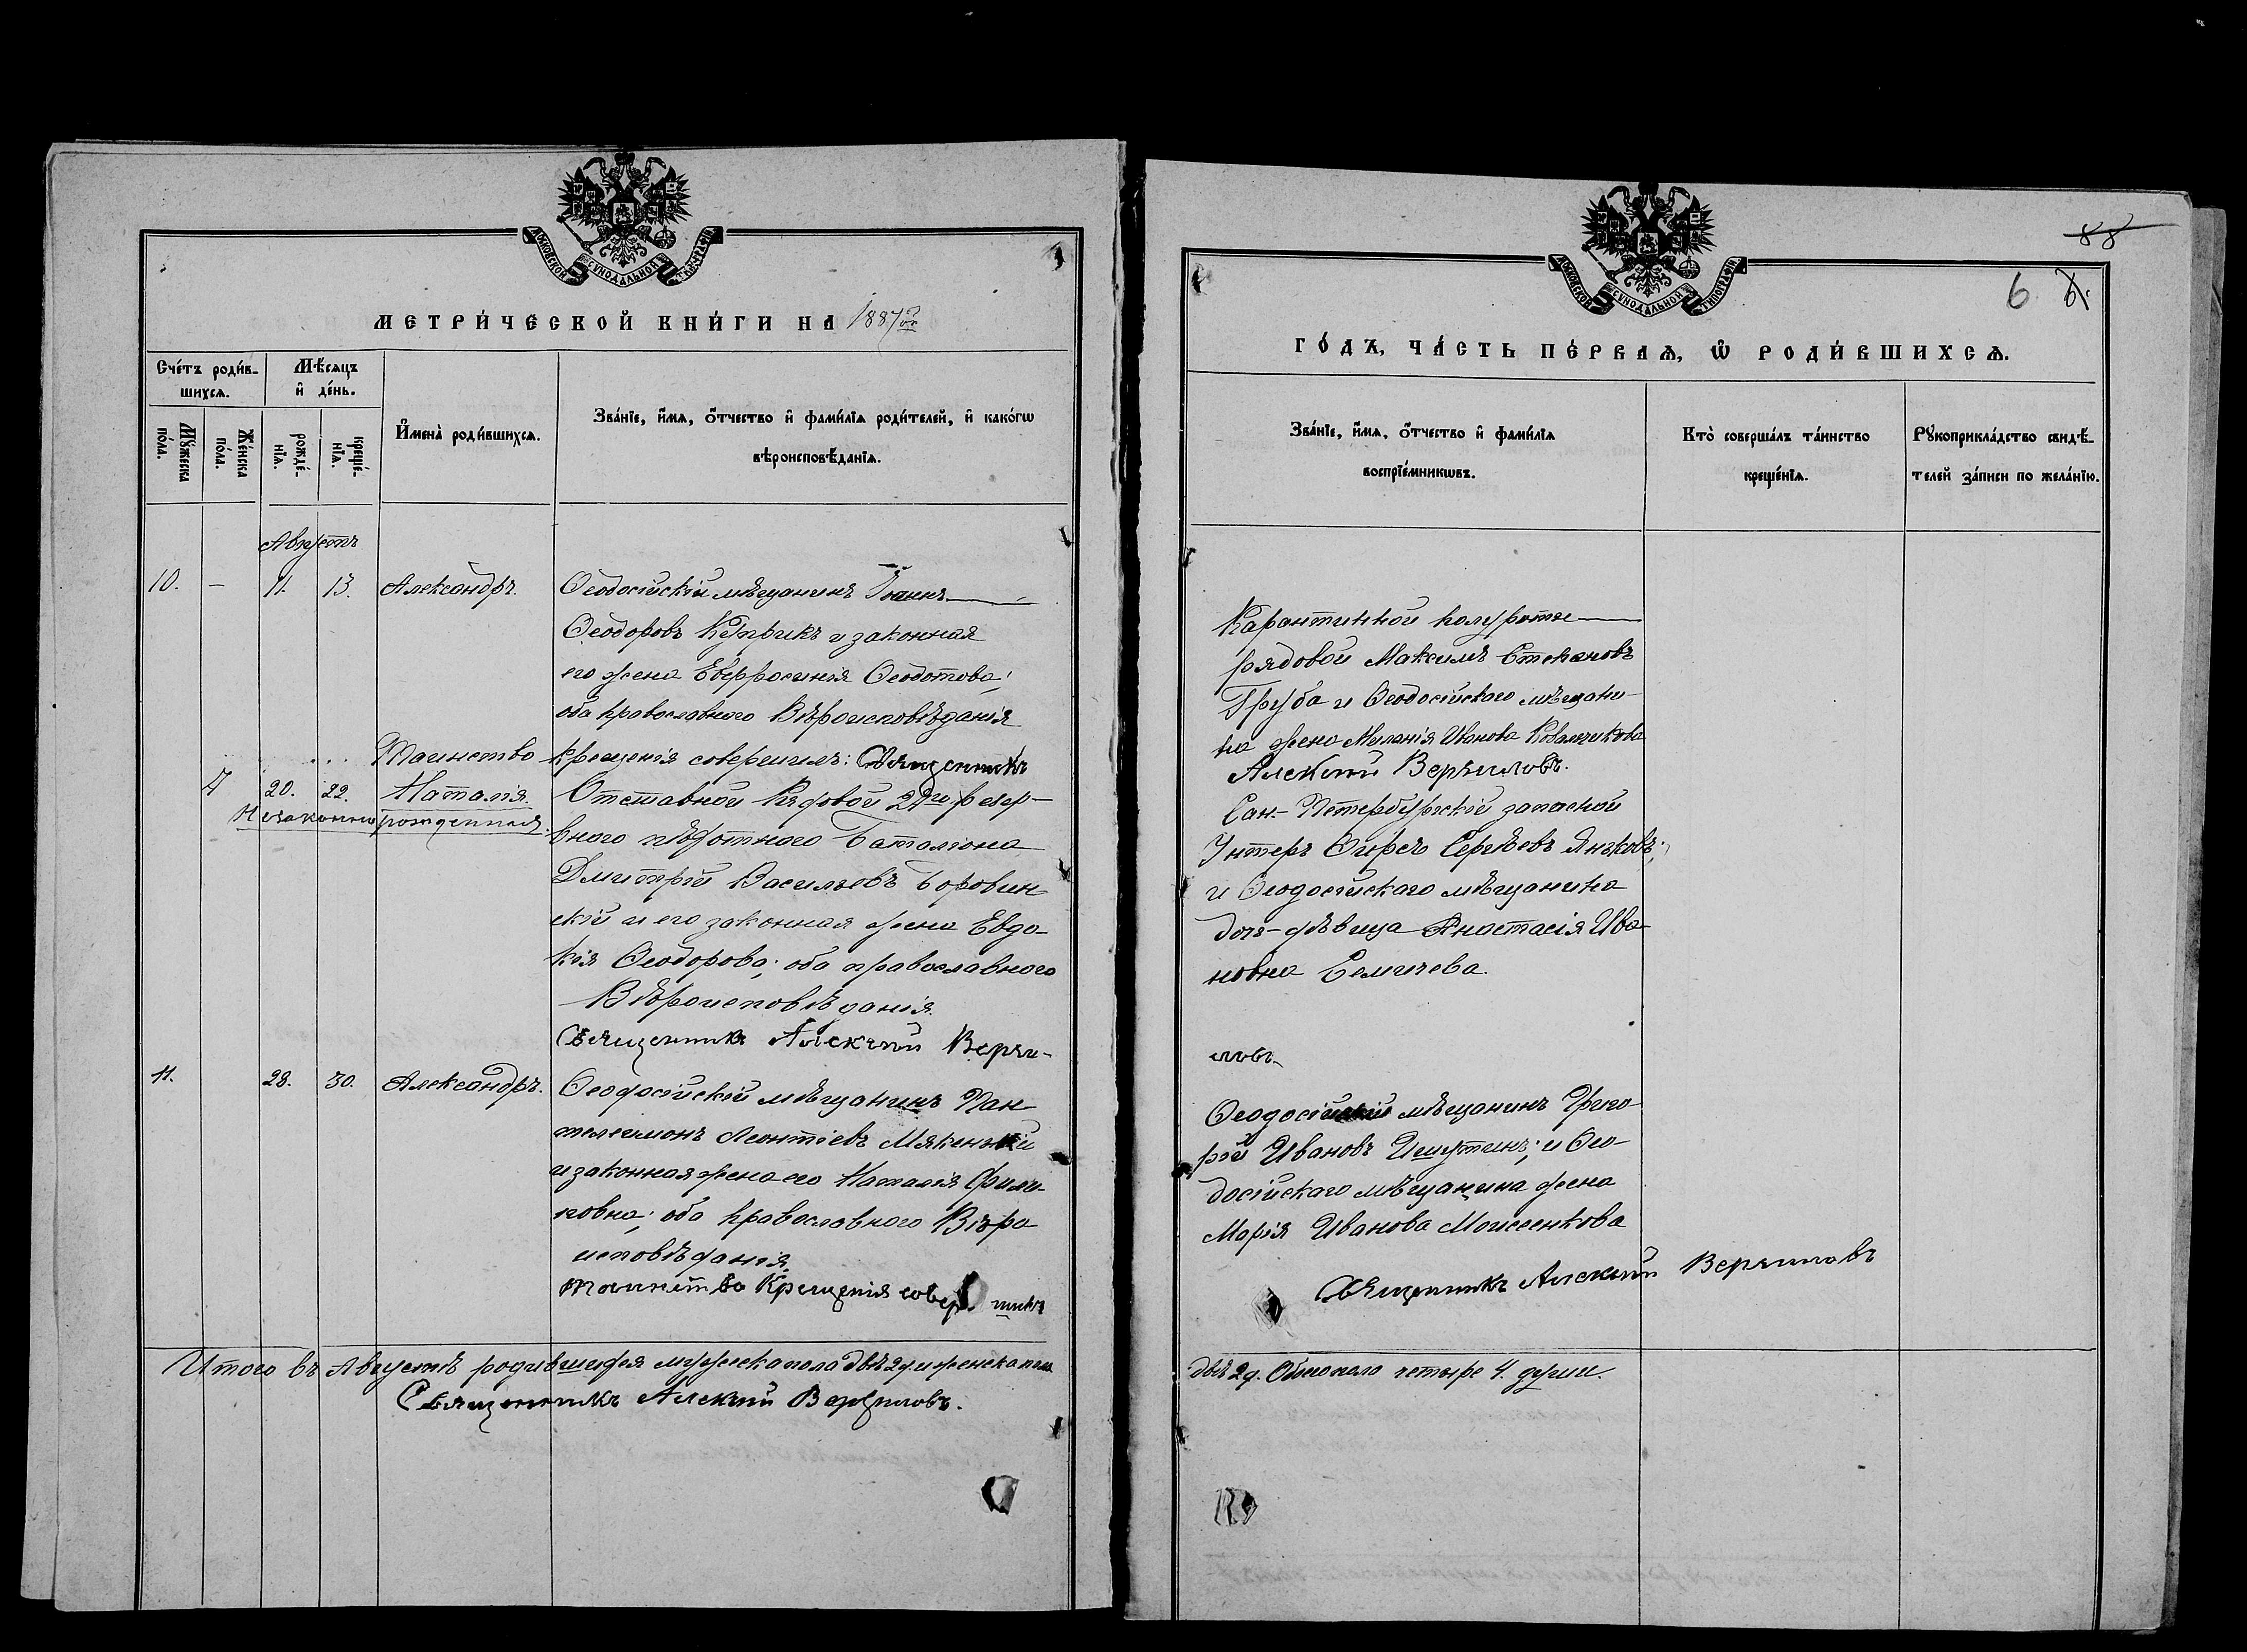 МОСКОВСКОЙ СУНОДАЛЬНОЙ ТИПОГРАФІИ
МЕТРИ́ЧЕСКОЙ КНИ́ГИ НА 1887
Сче́тъ роди́в-
шихсѧ.
Мѣ́сяцъ
и҆ де́нь.
Мꙋ́жеска
по́ла.
Же́нска
по́ла.
рожде́-
нїѧ.
креще́-
нїѧ.
И҆мена̀ роди́вшихсѧ.
Зва́нїе, и҆́мѧ, ѻ҆́тчество и҆ фами́лїѧ роди́телей, и҆ како́гѡ
вѣроисповѣ́данїѧ.
Августъ
10. — 11. 13. Александръ.
Ѳеодосійскій мѣщанинъ Іоаннъ
Ѳеодоровъ и законная
его жена Евфросинія Ѳеодотова;
оба православнаго Вѣроисповѣданія
Таинство крещенія совершилъ: Священникъ
7 20. 22. Наталія.
Незаконнорожденная.
Отставной Рядовой резер-
внаго пѣхотнаго баталіона
Дмитрій Васильевъ Боровин-
скій и его законная жена Евдо-
кія Ѳеодорова; оба православнаго
Вѣроисповѣданія.
Священникъ Алексій Вери-
11. 28. 30. Александръ.
Ѳеодосійскій мѣщанинъ Пан-
телеимонъ Леонтіевъ Мякенькій
и законная жена его Наталія Фили-
повна; оба православнаго Вѣро
исповѣданія.
таинство Крещенія совер шилъ
Итого въ Августѣ родившихся мужеска пола двѣ 2 д. и женска пола
Священникъ Алексій
МОСКОВСКОЙ СУНОДАЛЬНОЙ ТИПОГРАФІИ
88
6
ГО́ДЪ, ЧА́СТЬ ПЕ́РВАѦ, Ѽ РОДИ́ВШИХСѦ.
Зва́нїе, и҆́мѧ, ѻ҆́тчество и҆ фами́лїѧ
воспрїе́мникѡвъ.
Кто̀ соверша́лъ та́инство
креще́нїѧ.
Рꙋкоприкла́дство свидѣ́-
телей за́писи по жела́нїю.
Карантинной полуроты
рядовой Максимъ Степановъ
Груба и Ѳеодосійскаго мѣщани-
на жена Меланія Иванова
Алексій
Сан.-Петербургскій запасной
Унтеръ Сергѣевъ
и Ѳеодосійскаго мѣщанина
дочь-дѣвица Анастасія Ива-
новна
ловъ.
Ѳеодосійскій мѣщанинъ Григо-
рій Ивановъ Ишутинъ; и Ѳео-
досійскаго мѣщанина жена
Марія Иванова Моисеенкова
Священникъ Алексій
двѣ 2 д. Обоего пола четыре 4. души.